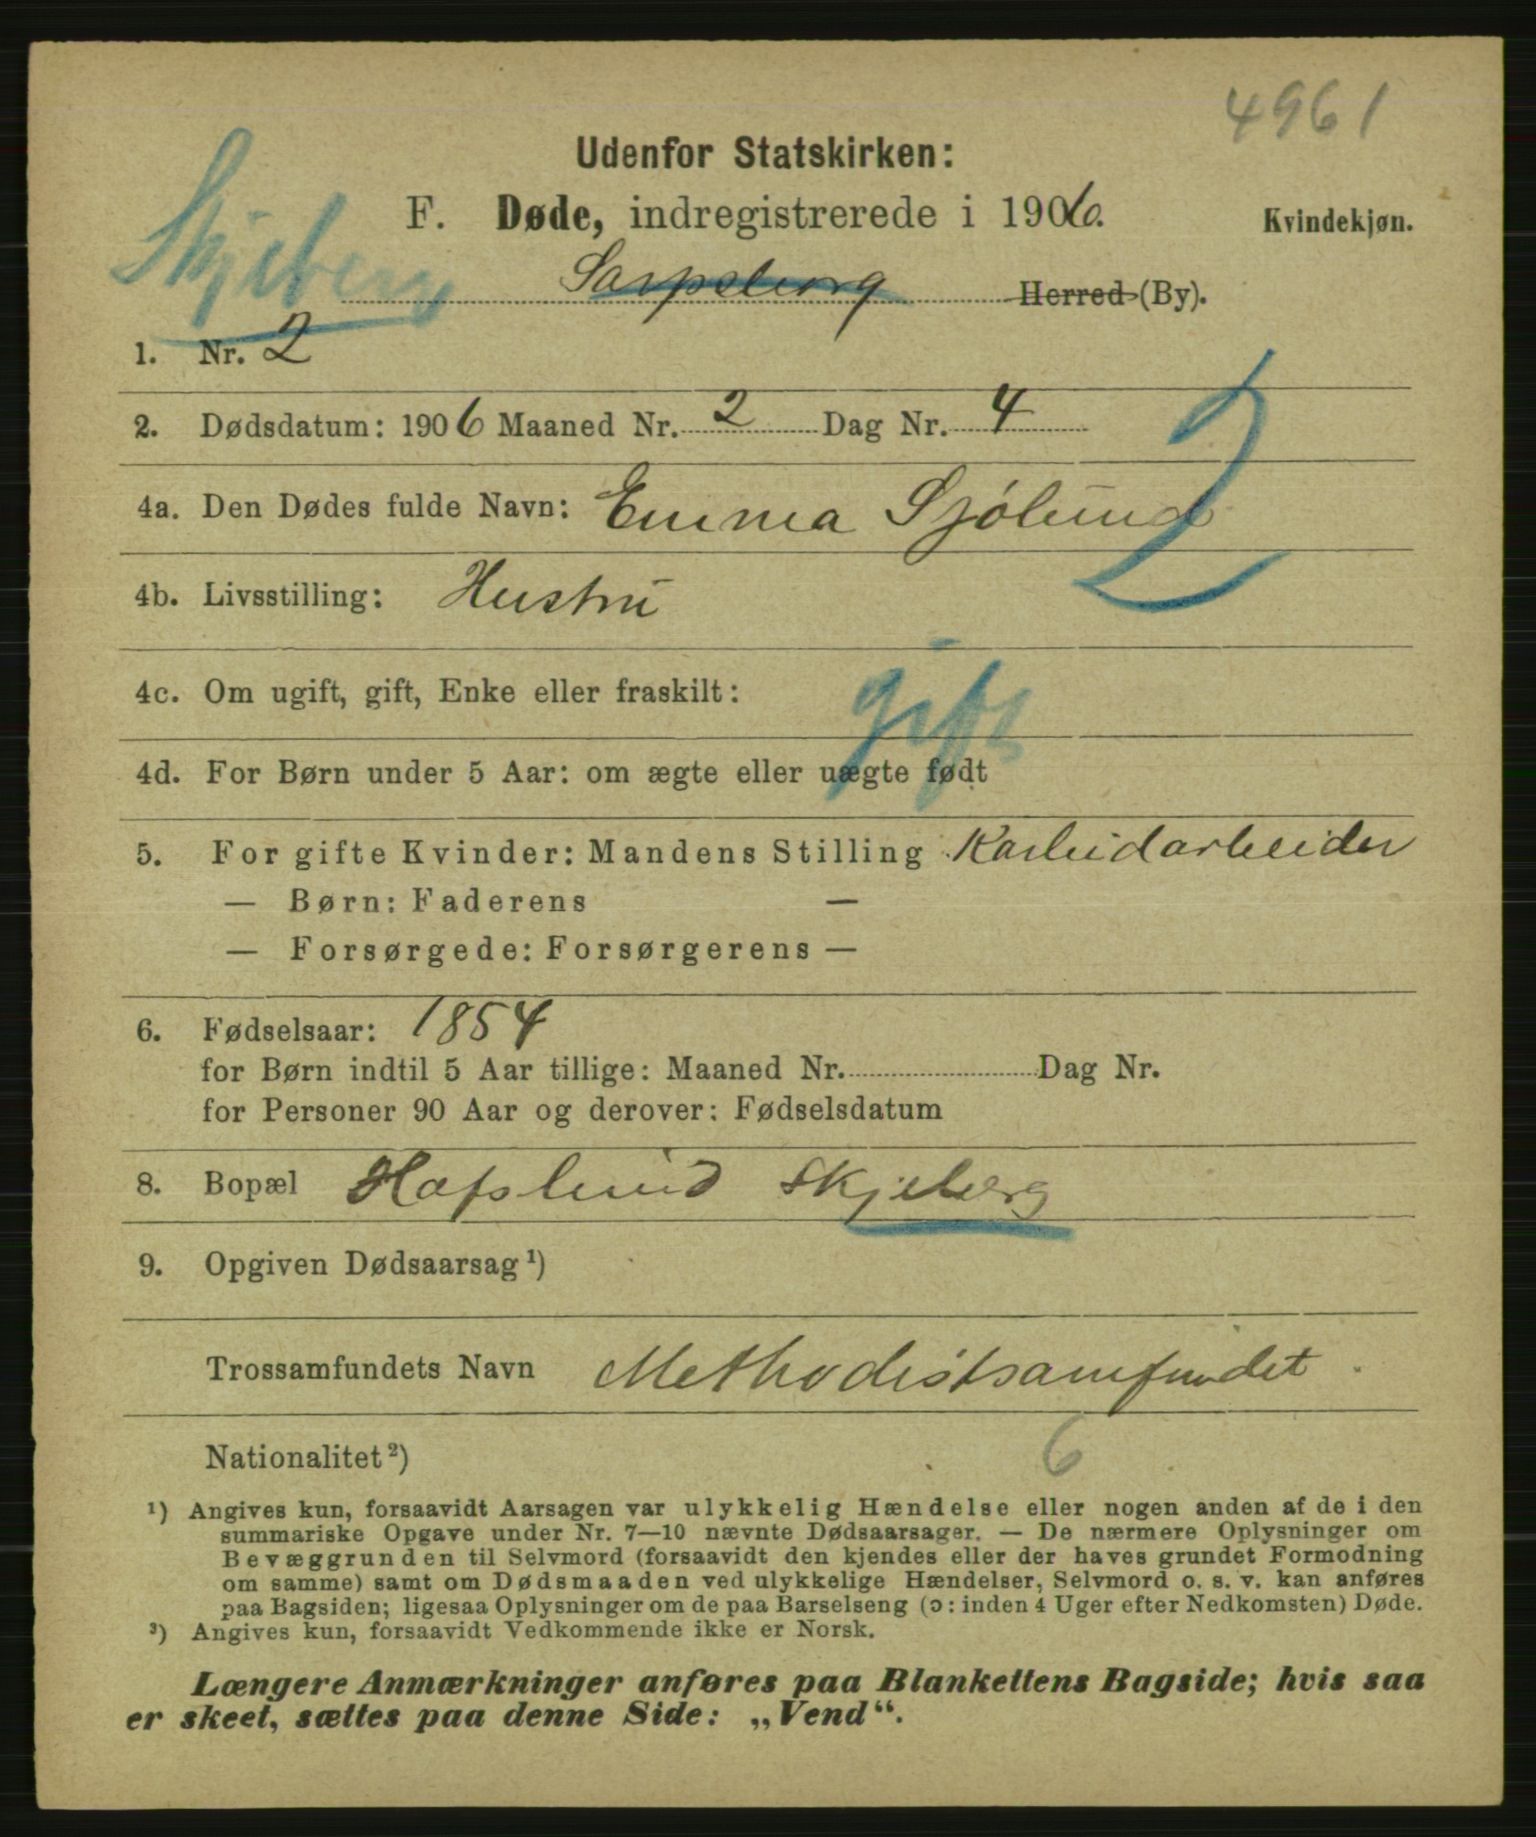 4961
Udenfor Statskirken:
F. Døde, indregistrerede i 1906.
Kvindekjøn.
Skjeberg
Sarpsborg Herred (By).
1. Nr. 2
2. Dødsdatum: 1906 Maaned Nr. 2 Dag Nr. 4
2
4a. Den Dødes fulde Navn: Emma Sjölund
4b. Livsstilling: Hustru
4c. Om ugift, gift, Enke eller fraskilt: gift
4d. For Børn under 5 Aar: om ægte eller uægte født
5. For gifte Kvinder: Mandens Stilling Karbidarbeider
— Børn: Faderens —
— Forsørgede: Forsørgerens —
6. Fødselsaar: 1854
for Børn indtil 5 Aar tillige: Maaned Nr. Dag Nr.
for Personer 90 Aar og derover: Fødselsdatum
8. Bopæl Hafslund Skjeberg
9. Opgiven Dødsaarsag ¹)
Trossamfundets Navn Methodistsamfundet.
Nationalitet ²)
6
¹) Angives kun, forsaavidt Aarsagen var ulykkelig Hændelse eller nogen anden af de i den
summariske Opgave under Nr. 7—10 nævnte Dødsaarsager. — De nærmere Oplysninger om
Bevæggrunden til Selvmord (forsaavidt den kjendes eller der haves grundet Formodning
om samme) samt om Dødsmaaden ved ulykkelige Hændelser, Selvmord o. s. v. kan anføres
paa Bagsiden; ligesaa Oplysninger om de paa Barselseng (ɔ: inden 4 Uger efter Nedkomsten) Døde.
³) Angives kun, forsaavidt Vedkommende ikke er Norsk.
Længere Anmærkninger anføres paa Blankettens Bagside; hvis saa
er skeet, sættes paa denne Side: „Vend“.